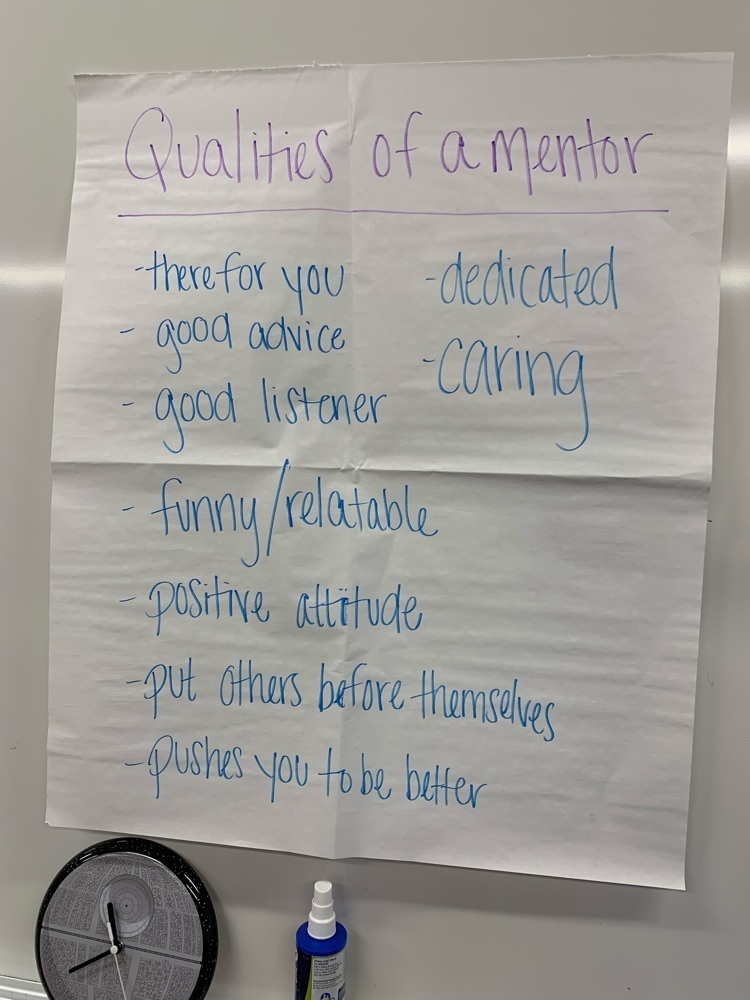 Qualities of a mentor
- there for you
- good advice
- good listener
- funny/relatable
- positive attitude
- put others before themselves
- pushes you to be better
- dedicated
- caring